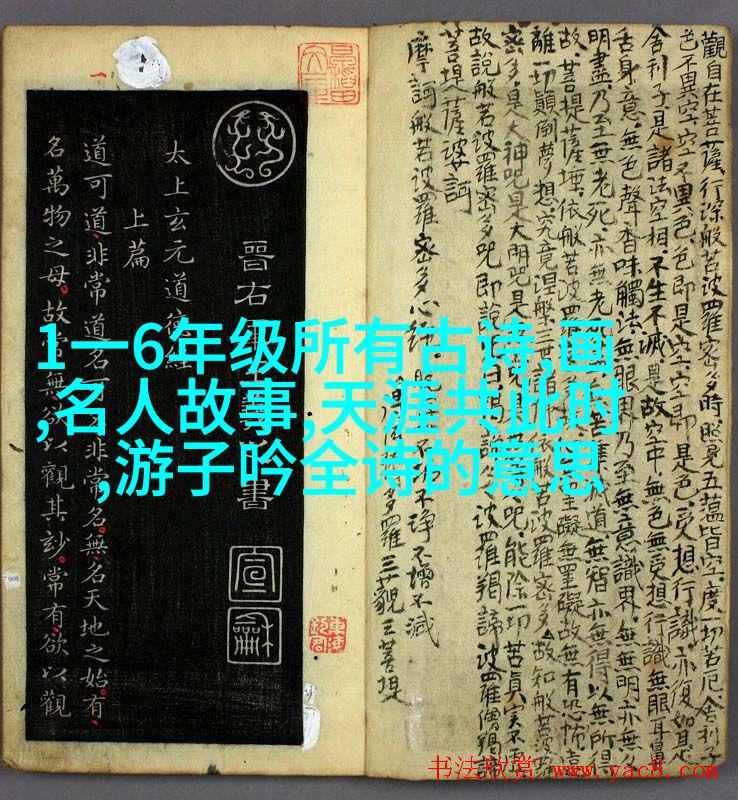 1一6年级所有古诗,画
,名人故事,天涯共此时
,游子吟全诗的意思
觀自在菩薩行深般若波羅蜜多時照見五蘊皆空度一切苦厄舍利子
色不異空空不異色色即是空空即是色受想行識亦復如是
舍利子是諸法空相不生不滅是故空中無色無受想行識無眼耳鼻
舌身意無色聲香味觸法無眼界乃至無意識界無無明亦無
明盡乃至無老死亦無老 集滅道無智亦無得以無所得
故菩提薩埵依般若波羅 罣礙無罣礙故無有恐怖遠
離一切顛倒夢想究竟涅槃三世諸 依般若波羅密多故知般若波
密多是大神咒是大明咒是 咒能除一切苦真實不虛
故說般若波羅密多咒即說 曰 波羅揭諦波羅僧揭諦
菩提薩婆訶
摩訶般若波羅密多心經 不淨不增不減
得 多羅三藐三菩提
晉右軍 書
宣龢
太上玄元道德經
上篇
道可道非常道名可名非常名無名天地之始有
名萬物之母故常無欲以觀其玅常有欲以觀
书法欣赏 www.yac8.com